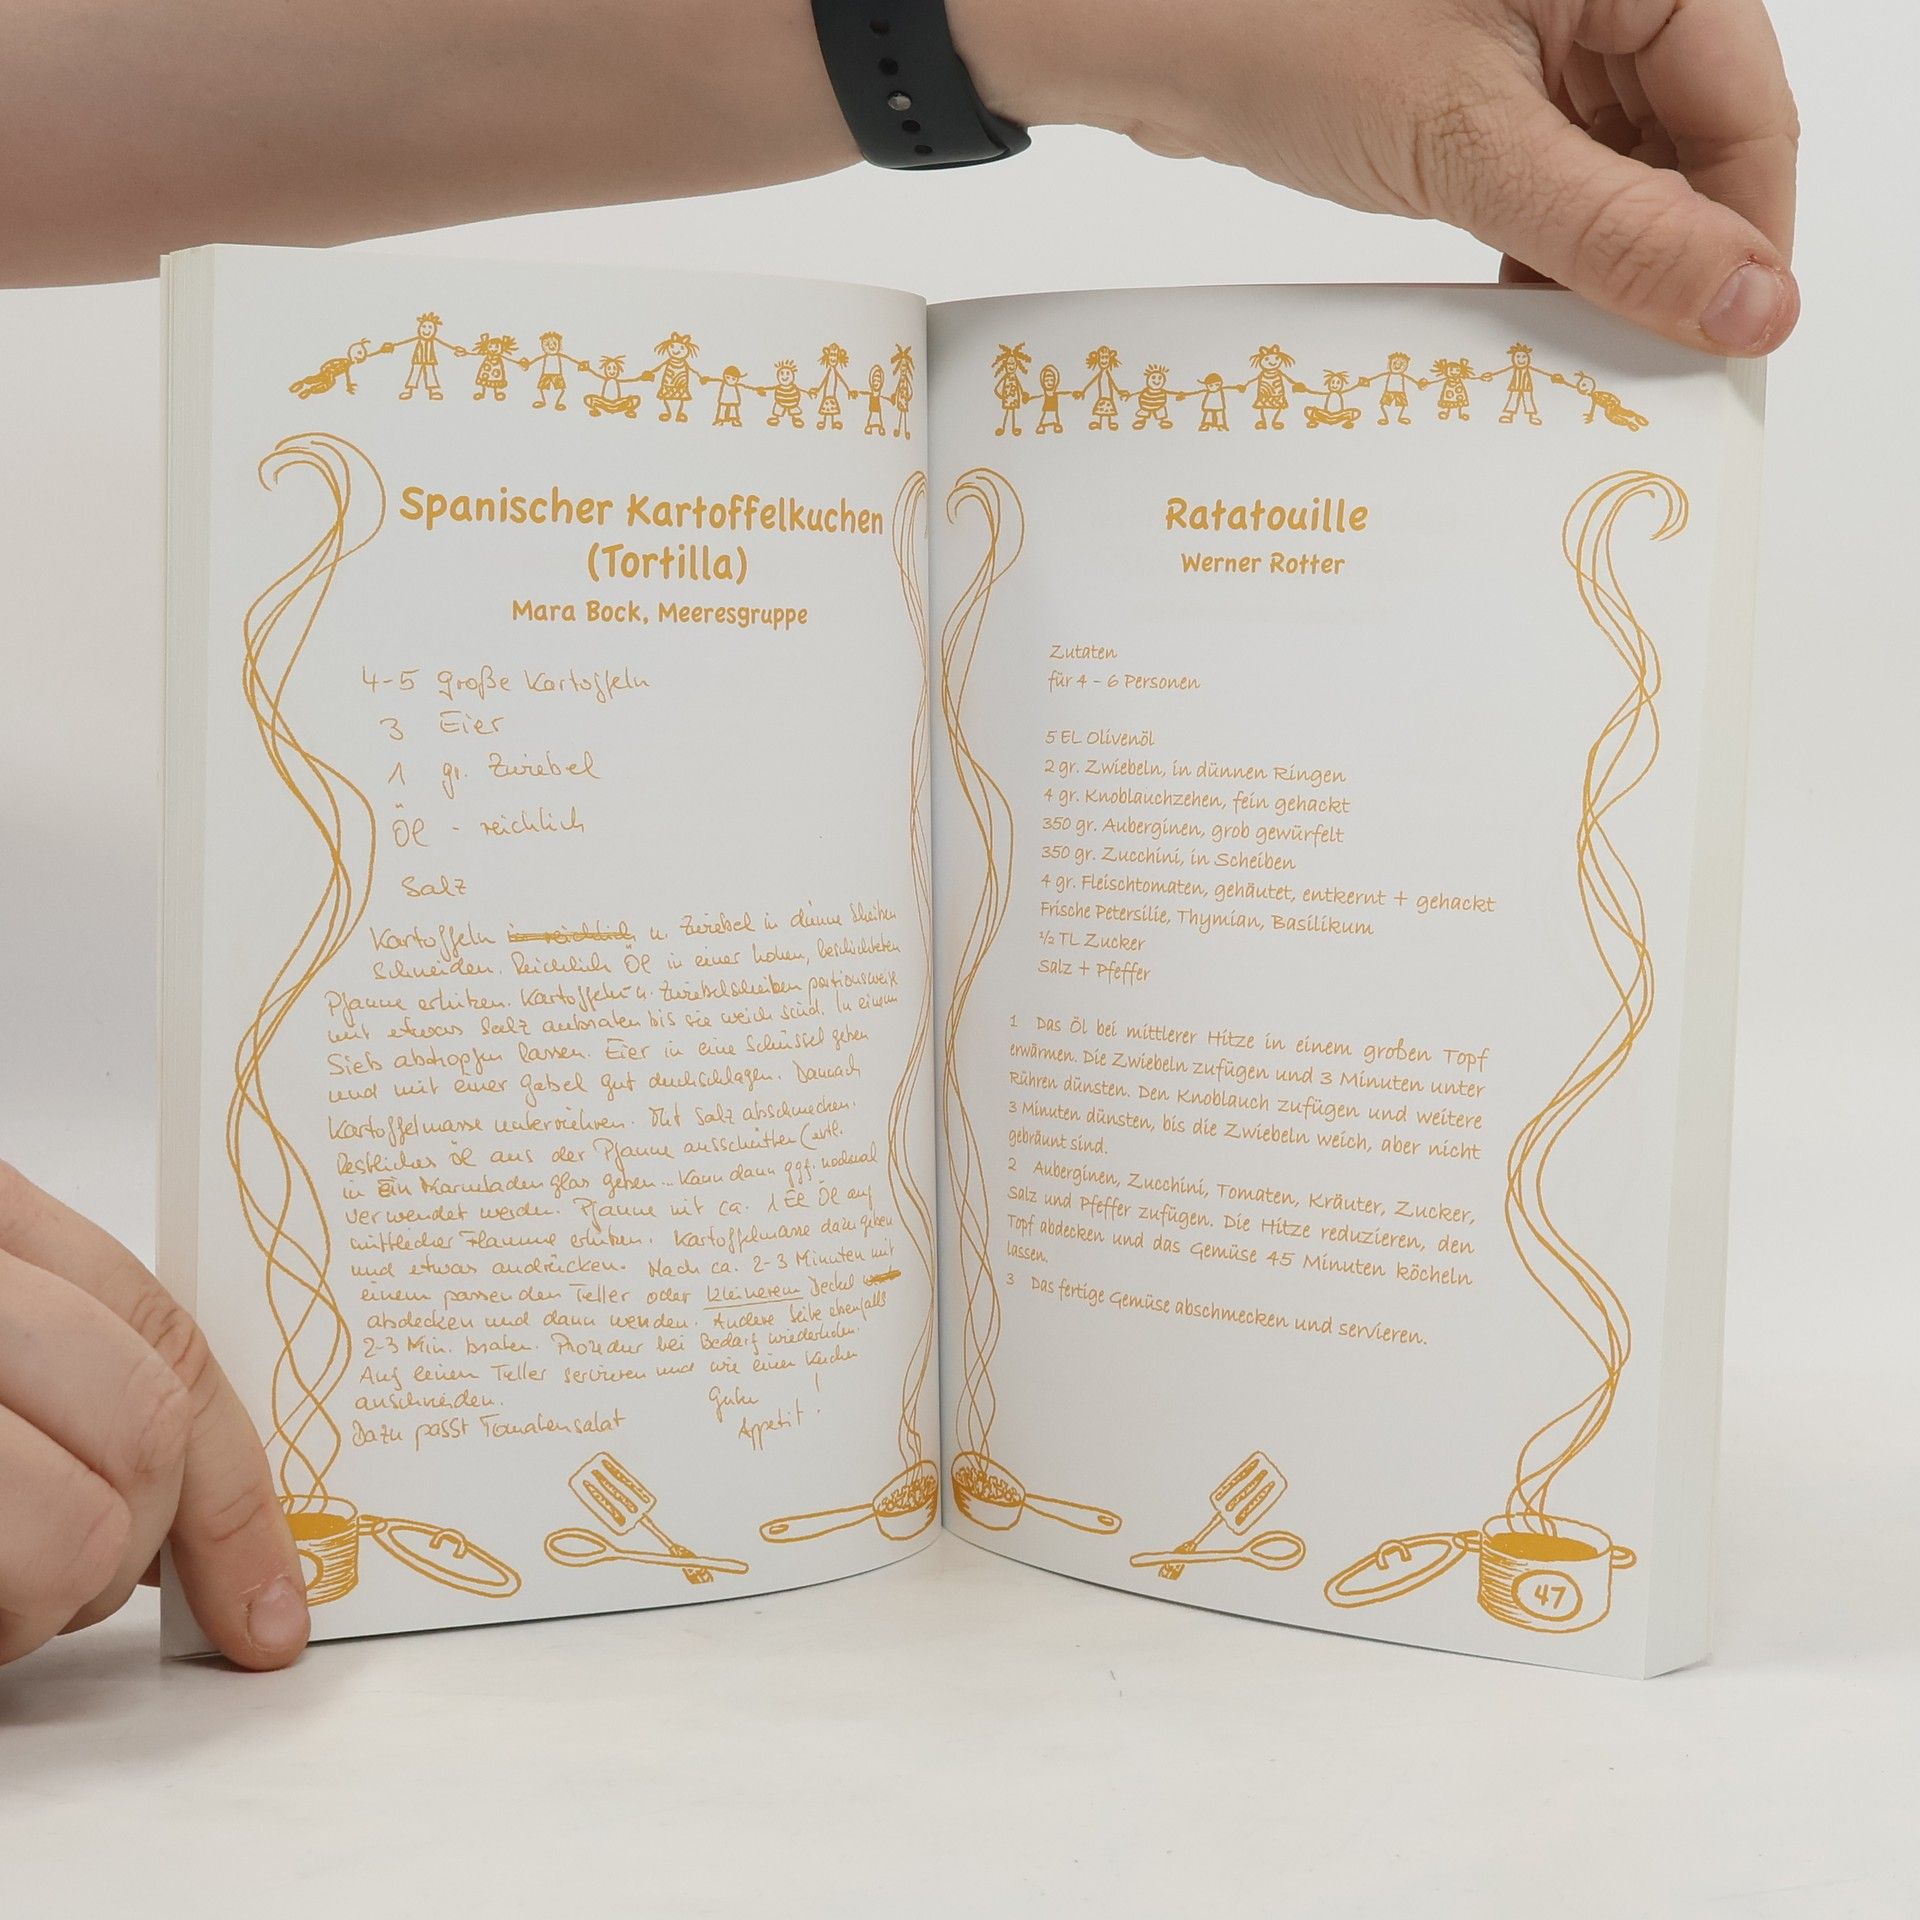 Spanischer Kartoffelkuchen
(Tortilla)
Mara Bock, Meeresgruppe
4-5 große Kartoffeln
3 Eier
1 gr. Zwiebel
Öl - reichlich
Salz
Kartoffeln in reichlich u. Zwiebel in dünne Scheiben
schneiden. Reichlich Öl in einer hohen, beschichteten
Pfanne erhitzen. Kartoffeln u. Zwiebelscheiben portionsweise
mit etwas Salz anbraten bis sie weich sind. In einem
Sieb abtropfen lassen. Eier in eine Schüssel geben
und mit einer Gabel gut durchschlagen. Danach
Kartoffelmasse unterrühren. Mit Salz abschmecken.
Restliches Öl aus der Pfanne ausschütten (evtl.
in Ein Marmeladenglas geben... Kann dann ggf. nochmal
verwendet werden. Pfanne mit ca. 1 EL Öl auf
mittlerer Flamme erhitzen. Kartoffelmasse dazu geben
und etwas andrücken. Nach ca. 2-3 Minuten mit
einem passenden Teller oder kleinerem Deckel
abdecken und dann wenden. Andere Seite ebenfalls
2-3 Min. braten. Prozedur bei Bedarf wiederholen.
Auf einen Teller servieren und wie einen Kuchen
anschneiden.
Dazu passt Tomatensalat
Guten
Appetit!
Ratatouille
Werner Rotter
Zutaten
für 4 - 6 Personen
5 EL Olivenöl
2 gr. Zwiebeln, in dünnen Ringen
4 gr. Knoblauchzehen, fein gehackt
350 gr. Auberginen, grob gewürfelt
350 gr. Zucchini, in Scheiben
4 gr. Fleischtomaten, gehäutet, entkernt + gehackt
Frische Petersilie, Thymian, Basilikum
½ TL Zucker
Salz + Pfeffer
1 Das Öl bei mittlerer Hitze in einem großen Topf
erwärmen. Die Zwiebeln zufügen und 3 Minuten unter
Rühren dünsten. Den Knoblauch zufügen und weitere
3 Minuten dünsten, bis die Zwiebeln weich, aber nicht
gebräunt sind.
2 Auberginen, Zucchini, Tomaten, Kräuter, Zucker,
Salz und Pfeffer zufügen. Die Hitze reduzieren, den
Topf abdecken und das Gemüse 45 Minuten köcheln
lassen.
3 Das fertige Gemüse abschmecken und servieren.
47